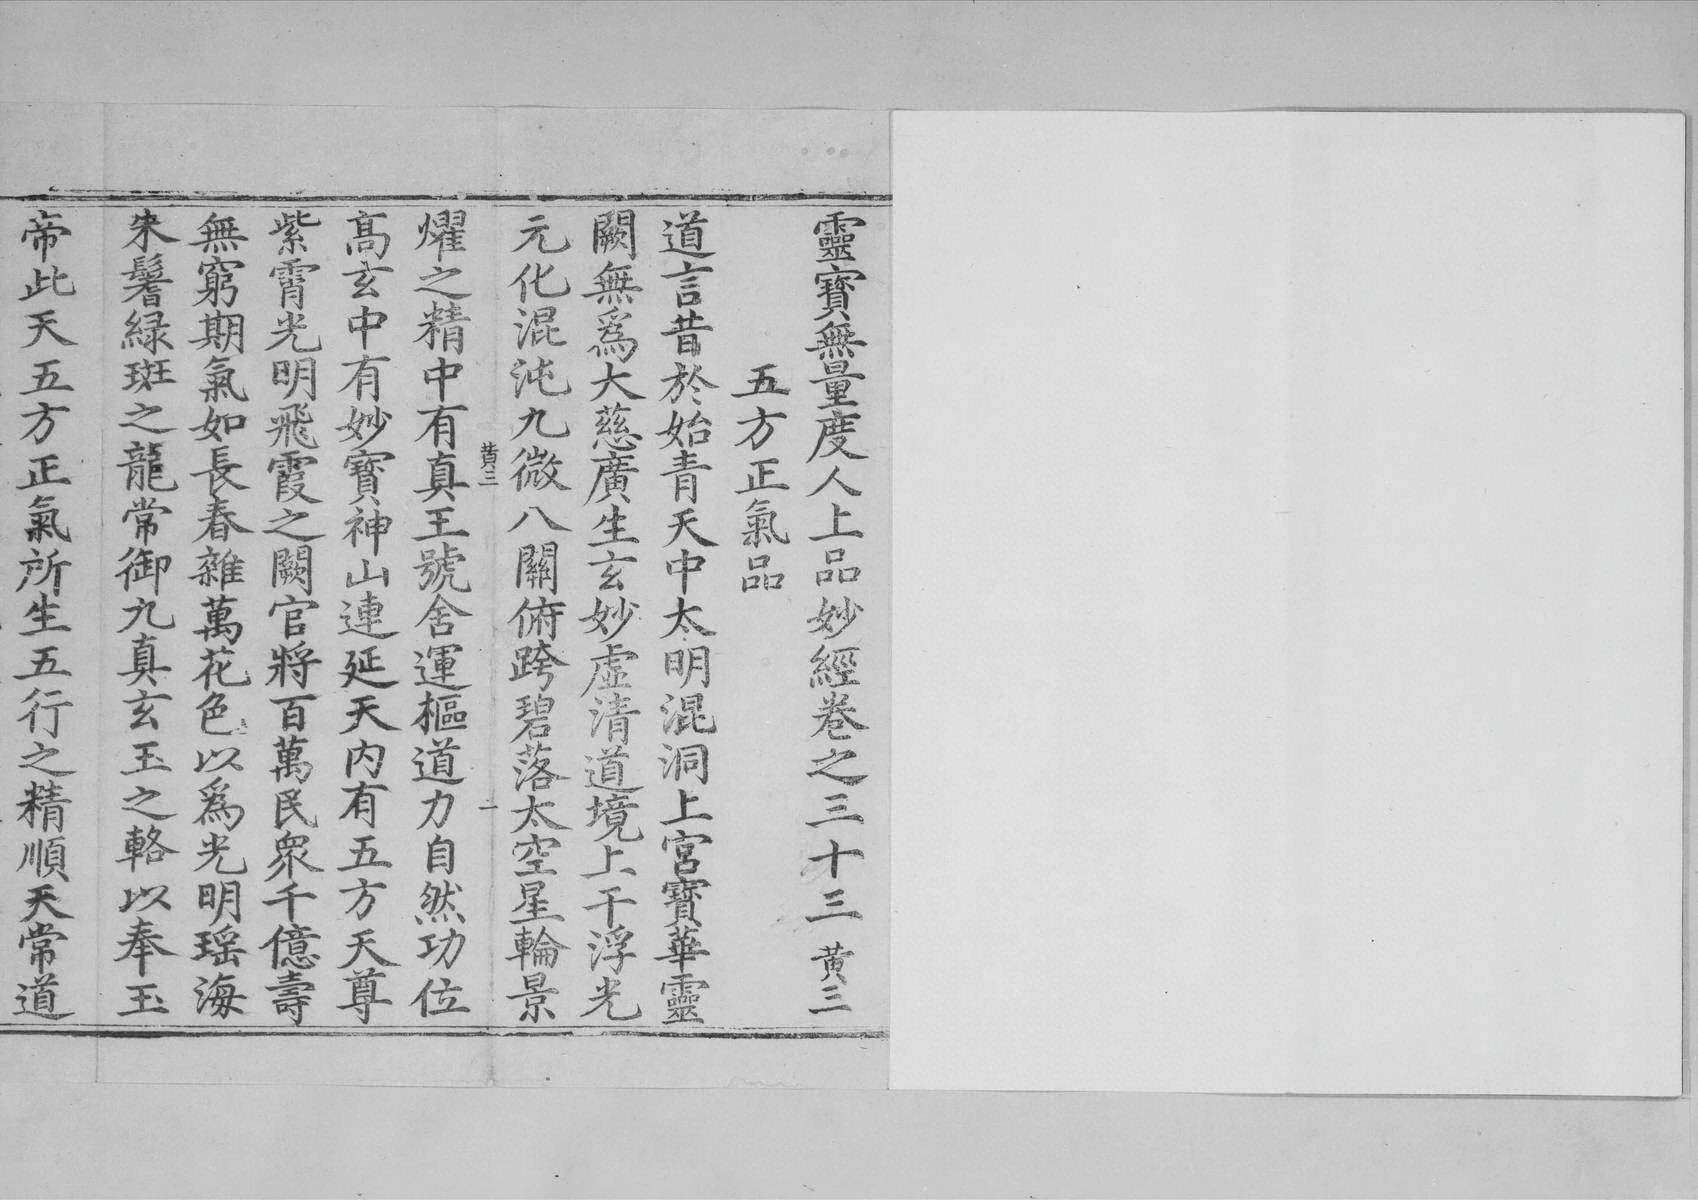 靈寶無量度人上品妙經卷之三十三 黃三
五方正氣品
道言昔於始青天中太明混洞上宮寶華靈
闕無爲大慈廣生玄妙虛清道境上干浮光
元化混沌九微八關俯跨碧落太空星輪景
黃三 二
燿之精中有真王號舍運樞道力自然功位
高玄中有妙寶神山連延天內有五方天尊
紫霄光明飛霞之闕官將百萬民眾千億壽
無窮期氣如長春雜萬花色以爲光明瑶海
朱鬐緑斑之龍常御九真玄玉之輅以奉玉
帝此天五方正氣所生五行之精順天常道